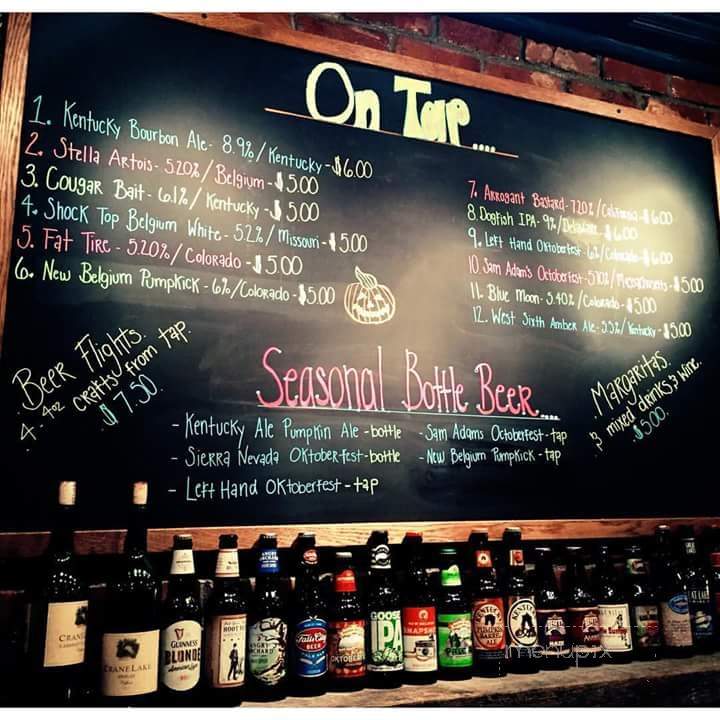 On Tap....
1. Kentucky Bourbon Ale - 8.9% / Kentucky - $6.00
2. Stella Artois - 5.20% / Belgium - $5.00
3. Cougar Bait - 6.1% / Kentucky - $5.00
4. Shock Top Belgium White - 5.2% / Missouri - $5.00
5. Fat Tire - 5.20% / Colorado - $5.00
6. New Belgium Pumpkick - 6% / Colorado - $5.00
7. Arrogant Bastard - 7.20% / California - $6.00
8. Dogfish IPA - 9% / Delaware - $6.00
9. Left Hand Oktoberfest - 6% / Colorado - $6.00
10. Sam Adam's Octoberfest - 5.70% / Massachusetts - $5.00
11. Blue Moon - 5.40% / Colorado - $5.00
12. West Sixth Amber Ale - 5.5% / Kentucky - $5.00
Beer Flights.
4 - 4oz crafts from tap.
$7.50
Seasonal Bottle Beer....
- Kentucky Ale Pumpkin Ale - bottle
- Sierra Nevada Oktoberfest - bottle
- Left Hand Oktoberfest - tap
- Sam Adams Octoberfest - tap
- New Belgium Pumpkick - tap
Margaritas
& mixed drinks & wine.
$5.00
CRANE LAKE
GUINNESS
BLONDE
ROOT
ANGRY
ORCHARD
Falls City
BEER
OKTOBERFEST
GOOSE
IPA
KENTUCKY
KENTUCKY
menupix